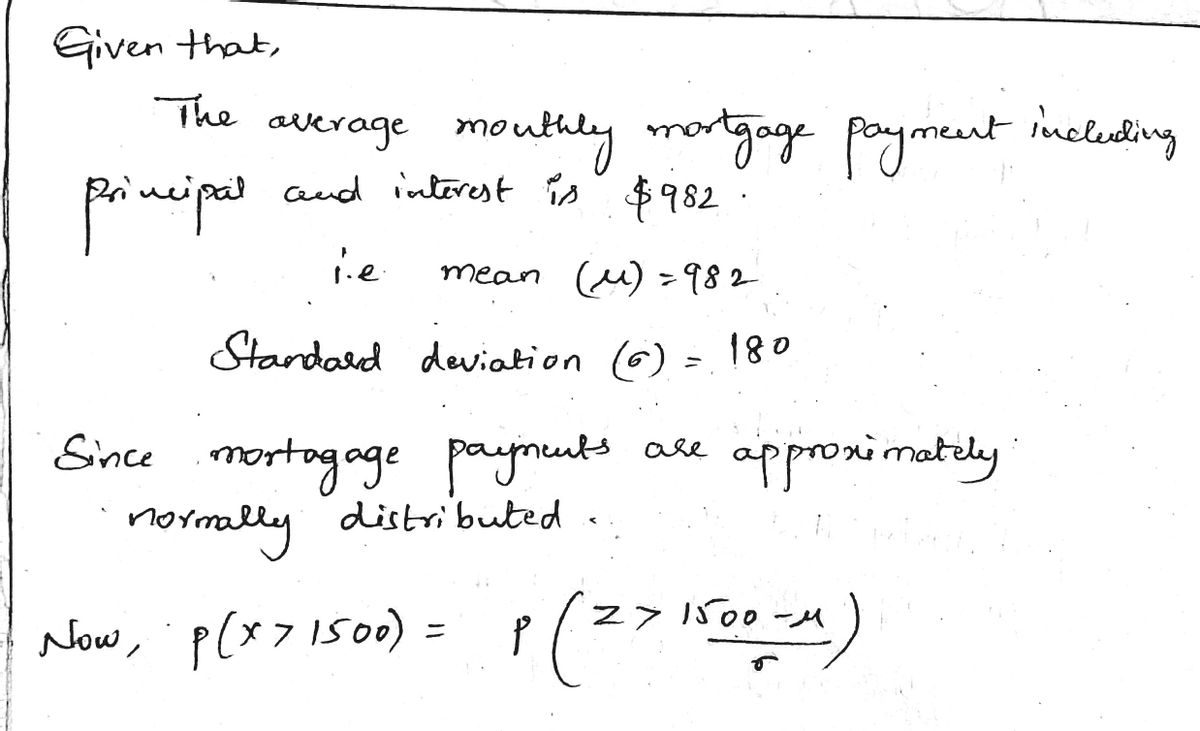 Given that,
The average monthly mortgage payment including
principal and interest is $982.
i.e. mean (μ) = 982
Standard deviation (σ) = 180
Since mortagage payments are approximately
normally distributed.
Now, p(x > 1500) = p(z > 1500 - μ / σ)